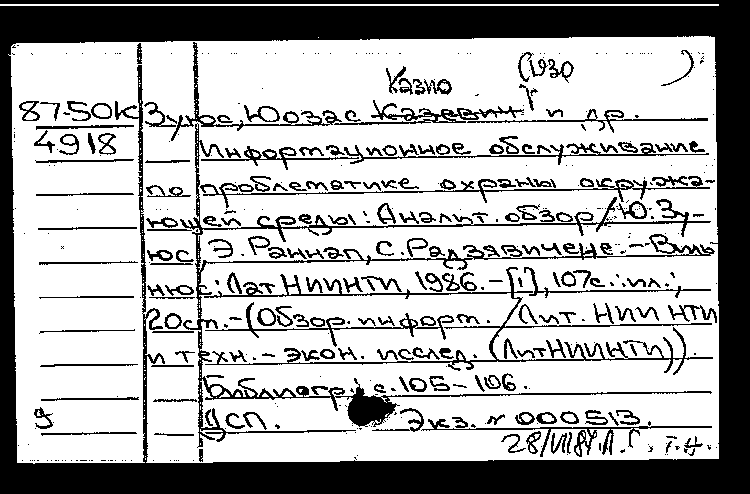 Казио (1930 )
87-50К Зуюс, Юозас Казевич и др.
4918 Информационное обслуживание
по проблематике охраны окружа-
ющей среды: Аналит. обзор/Ю. Зу-
юс, Э. Раннап, С. Радзявичене. - Виль-
нюс: ЛатНИИНТИ, 1986. - [1], 107с.: ил.;
20см. - (Обзор. информ. / Лит. НИИ НТИ
и техн. - экон. исслед. (ЛитНИИНТИ)).
Библиогр.: с. 105-106.
ДСП. Экз. № 000513.
28/VII87